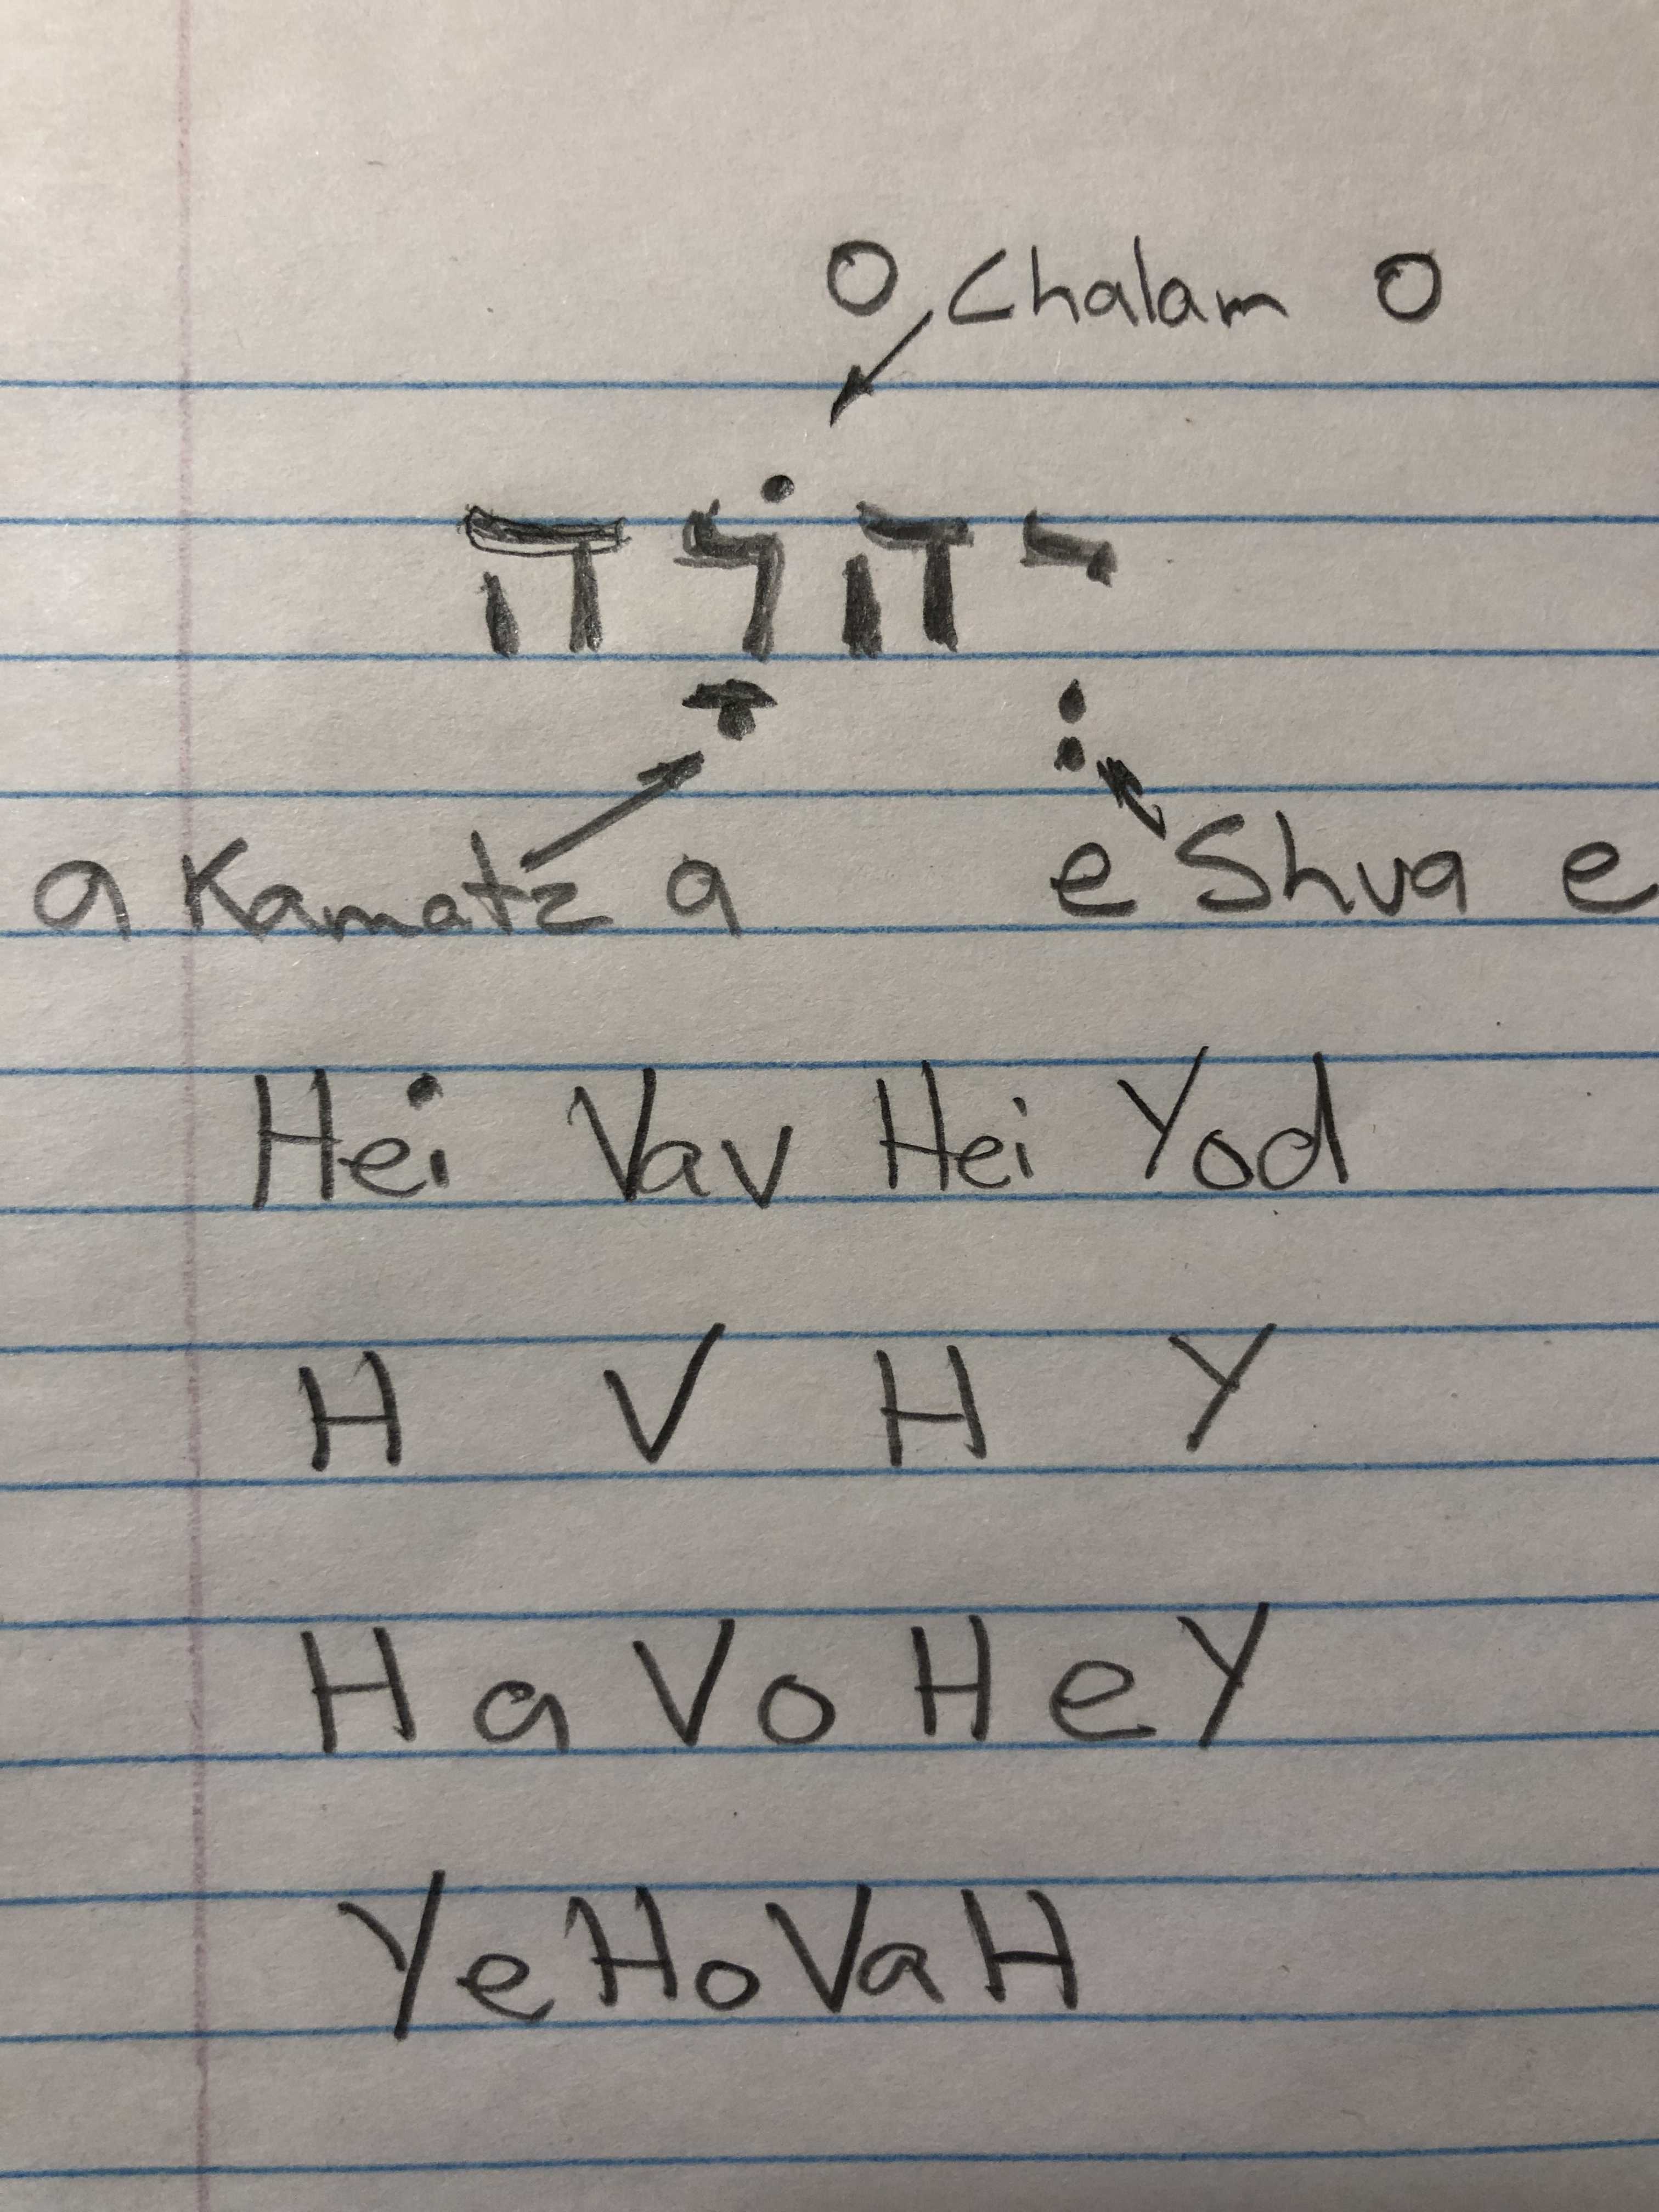 O Chalam O
יְהֹוָה
a Kamatz a e Shva e
Hei Vav Hei Yod
H V H Y
H a V o H e Y
YeHoVaH